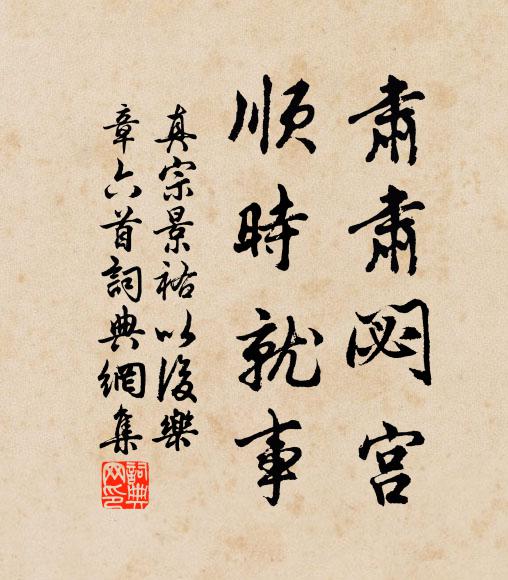 肅肅閟宮
順時就事
真宗景祐以後樂
章六首詞典網集
詞典網印